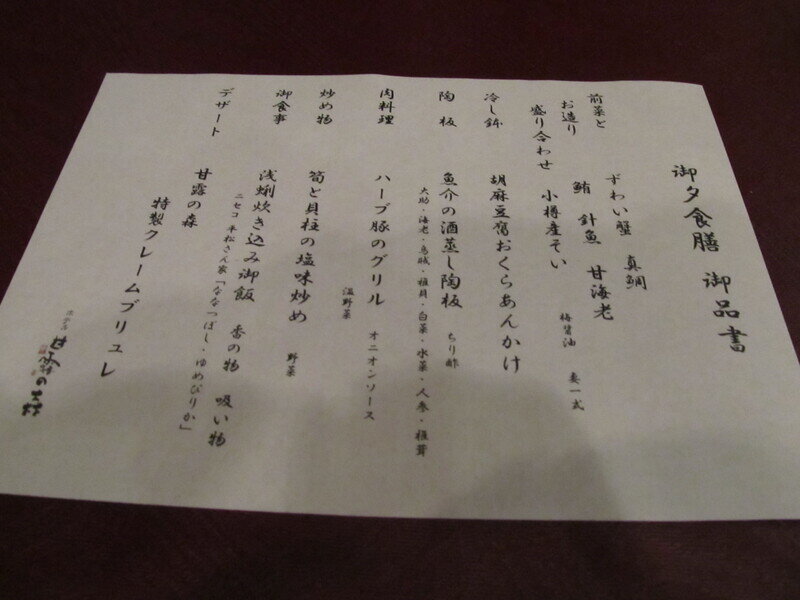 御夕食膳 御品書
前菜と
お造り
盛り合わせ
ずわい蟹 真鯛
鮪 針魚 甘海老
小樽産そい
梅醤油 妻一式
冷し鉢 胡麻豆腐おくらあんかけ
陶板 魚介の酒蒸し陶板 ちり酢
大助・海老・烏賊・帆貝・白菜・水菜・人参・椎茸
肉料理 ハーブ豚のグリル オニオンソース
温野菜
炒め物 筍と貝柱の塩味炒め 野菜
御食事 浅蜊炊き込み御飯 香の物 吸い物
ニセコ 平松さん家「ななつぼし・ゆめぴりか」
デザート 甘露の森
特製クレームブリュレ
ホテル 甘露の森